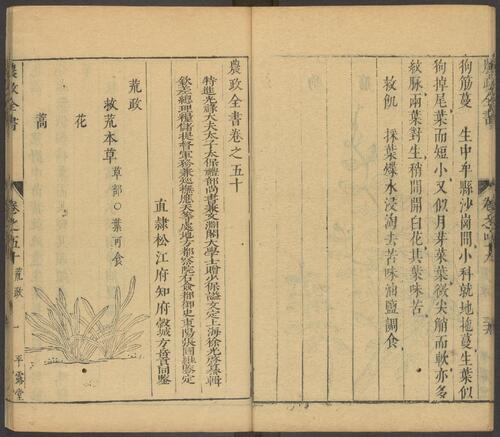 狗筋蔓 生中牟縣沙崗間小科就地拖蔓生葉似
狗掉尾葉而短小又似月芽菜葉微尖艄而軟亦多
紋脉兩葉對生稍間開白花其葉味苦
救飢 採葉煠水浸淘去苦味油鹽調食
農政全書卷之五十
特進光祿大夫太子太保禮部尚書兼文淵閣大學士贈少保謚文定上海徐光啓纂輯
欽差總理糧儲提督軍務兼巡撫應天等處地方都察院右僉都御史東陽張國維鑒定
直隸松江府知府穀城方岳貢同鑒
荒政
救荒本草 草部○葉可食
花
蒿
農政全書
卷之五十 荒政 一 平露堂